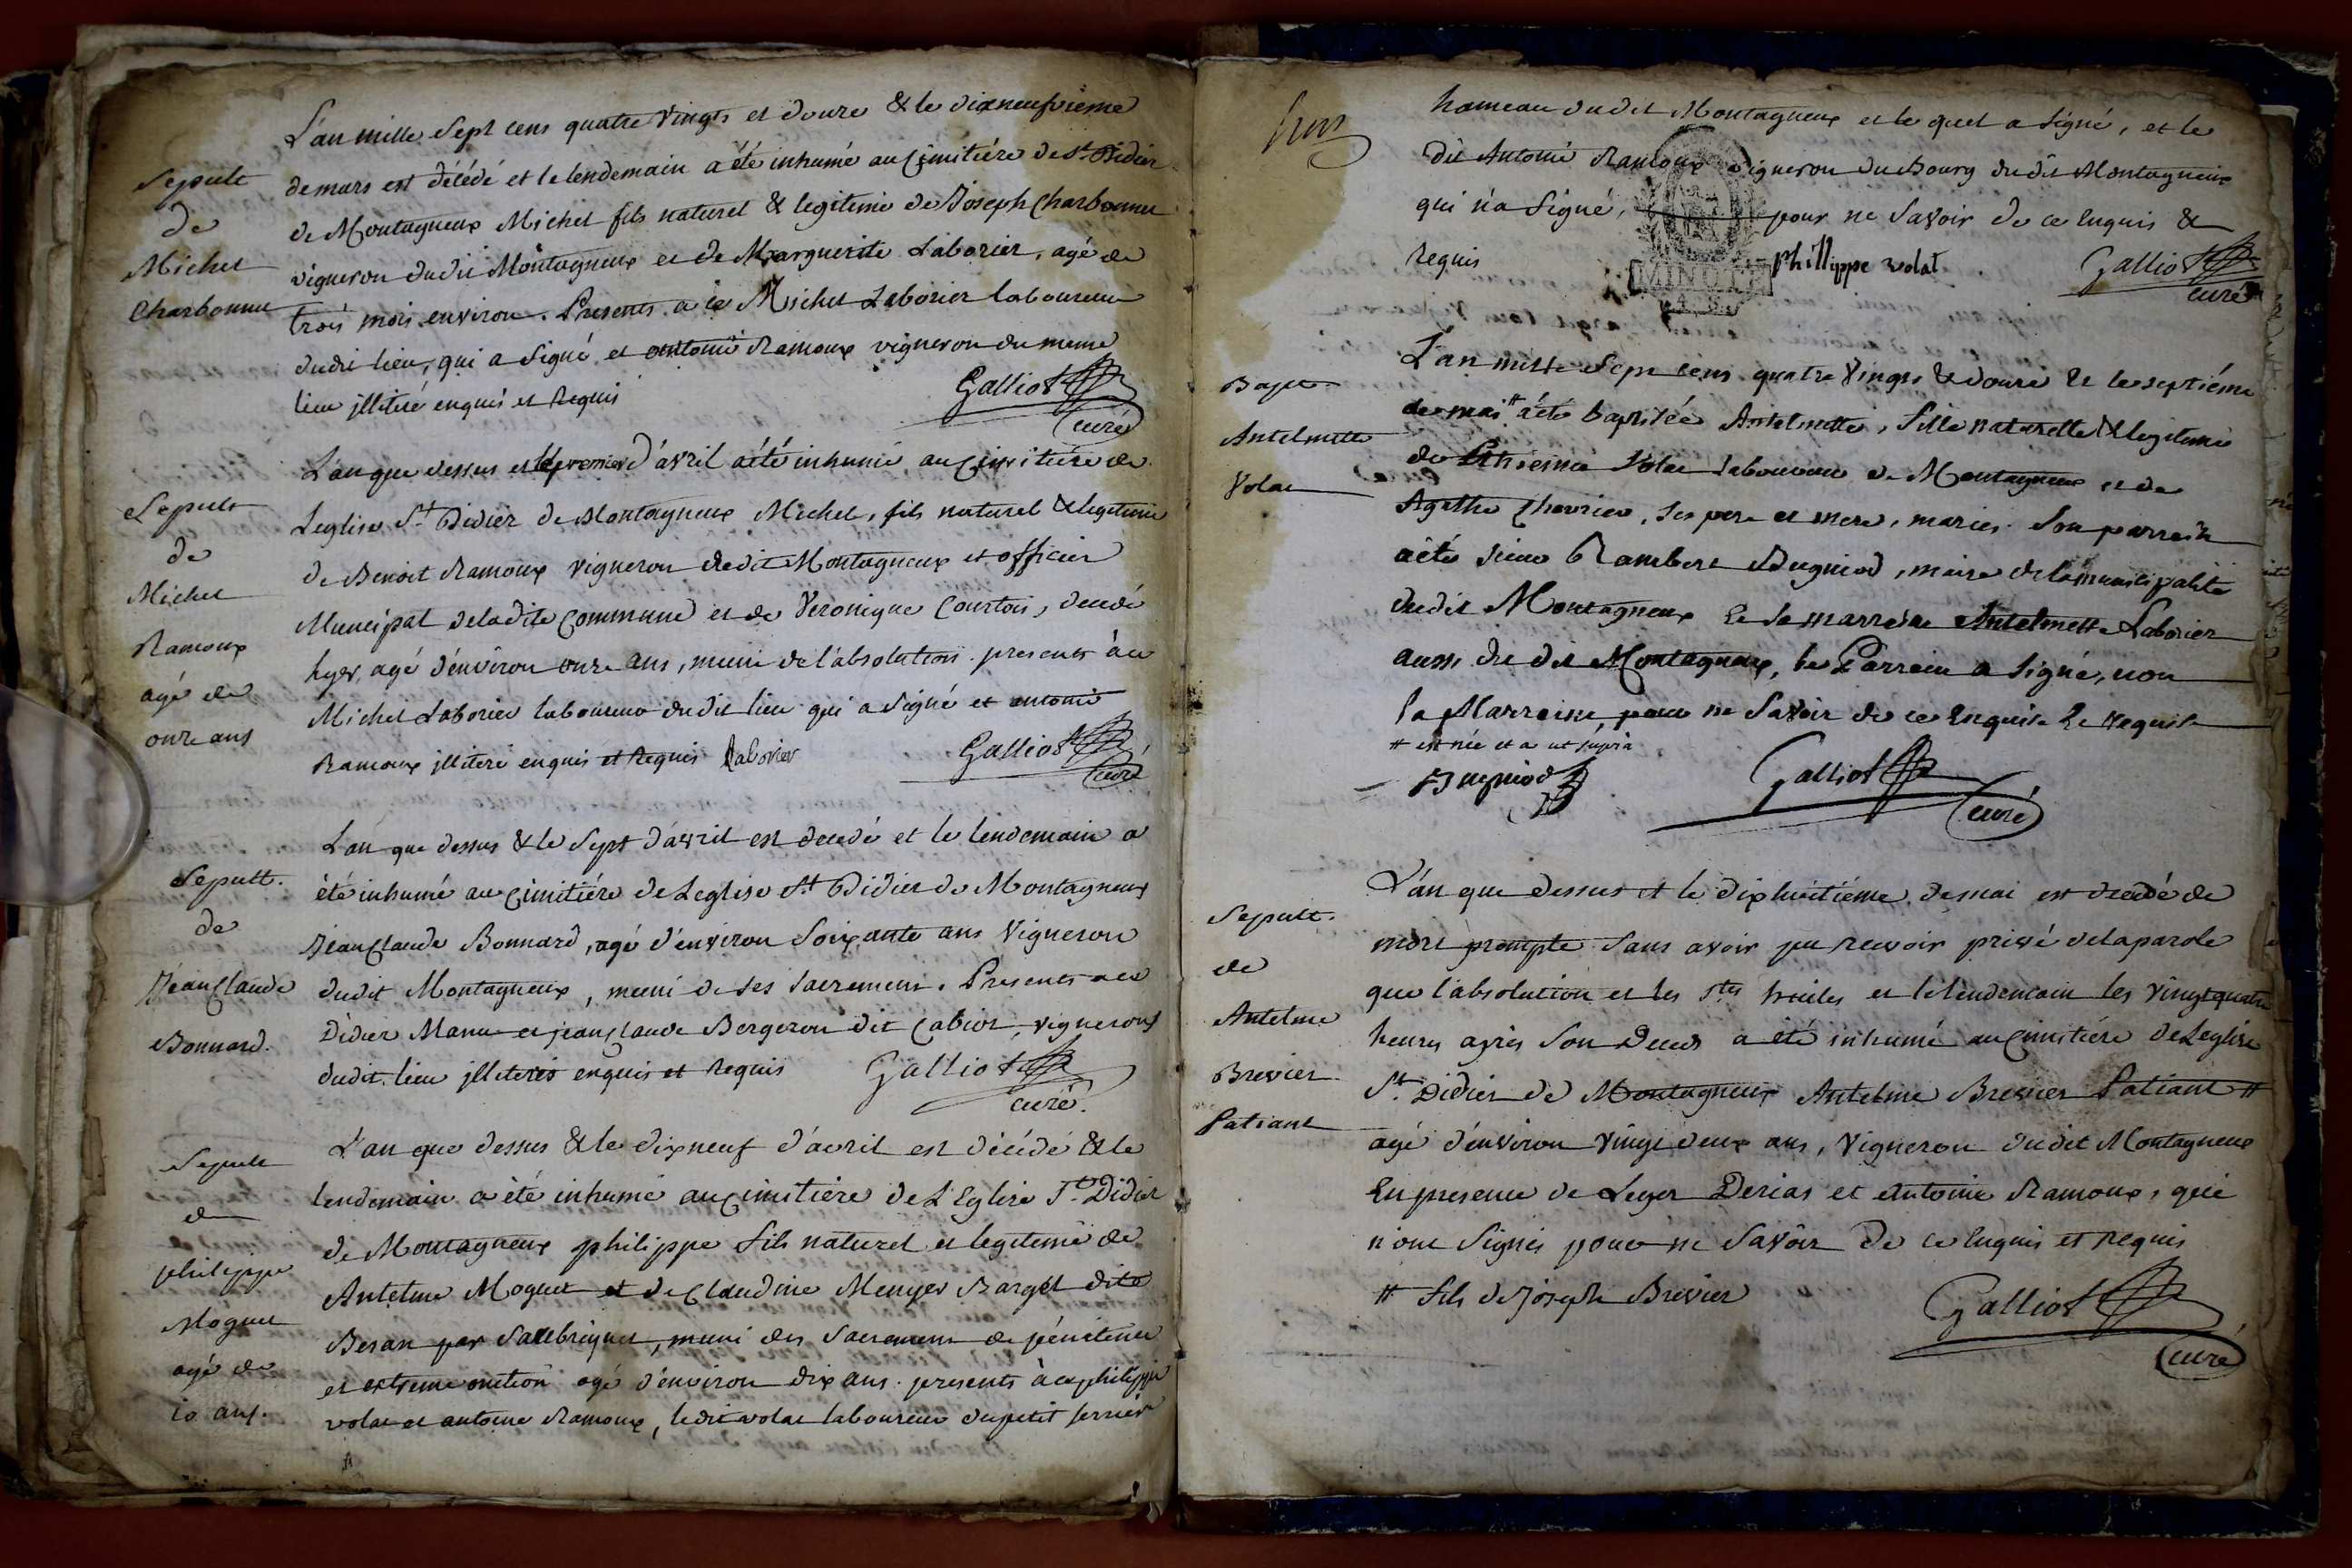 L'an mille Sept cens quatre Vingts et douze & le dixneufvième
Sepult
de mars est décédé et le lendemain a été inhumé au Cimitiére de St. Didier
de
de Montagneux Michel fils naturel & legitime de Joseph Charbonnu
Michel
vigneron dudit Montagneux et de Marguerite Laborier, agé de
Charbonnu
trois mois environ. Presents a ce Michel Laborier laboureur
dudit lieu, qui a signé et antoine Ramoux vigneron du meme
lieu jlliteré enquis et Requis
Galliot
curé
L'an que dessus et le premier d'avril a été inhumé au Cimitiére de
Sepult
de
Michel
Ramoux
agé de
onze ans
Leglise St. Didier de Montagneux Michel, fils naturel & legitime
de Benoit Ramoux vigneron dudit Montagneux et officier
Municipal de ladite Commune et de Veronique Courtois, decedé
hyer, agé d'environ onze ans, muni de l'absolution. presents à ce
Michel Laborier laboureur dudit lieu qui a signé et antoine
Ramoux jlliteré enquis et Requis Laborier
Galliot
curé
L'an que dessus & le Sept d'avril est decedé et le lendemain a
Sepult.
de
JeanClaude
Bonnard.
été inhumé au Cimitiére de Leglise St. Didier de Montagneux
JeanClaude Bonnard, agé d'environ soixante ans Vigneron
dudit Montagneux, muni de ses Sacremens. Presents a ce
Didier Manu et jeanClaude Bergeron dit Cabior, vignerons
dudit lieu jlliterés enquis et Requis
Galliot
curé.
L'an que dessus & le dixneuf d'avril est décédé & le
Sepult
de
philippe
Moguet
agé de
10 ans.
lendemain a été inhumé au Cimitiére de L'Eglise St. Didier
de Montagneux philippe fils naturel et legitime de
Antelme Moguet et de Claudine Menyer Barget dite
Besan par Saubriquet, muni des Sacremens de pénitence
et extreme onction agé d'environ dix ans. presents à ce philippe
volat et antoine Ramoux, ledit volat laboureur du petit
hameau dudit Montagneux et le quel a signé, et le
dit Antoine Ramoux vigneron du Bourg dudit Montagneux
qui n'a signé, pour ne Savoir de ce Enquis &
Requis
MINUTE
phillippe volat
Galliot
curé
L'an mille Sept cens quatre Vingts & douze & le septiéme
Bapt
Antelmette
Volat
de mai # a été baptisée Antelmette, fille naturelle & legitime
de Volat laboureur de Montagneux et de
Agathe Chevrier, ses pere et mere, mariés. Son parrain
a été sieur Rambert Bugniod, maire de la municipalité
dudit Montagneux & la marraine Antelmette Laborier
aussi du dit Montagneux, le Parrein a signé, non
la Marreine pour ne Savoir de ce Enquise & requise
# est née et a ut suprà
Bugniod
Galliot
curé
L'an que dessus et le dixhuitiéme de mai est decedé de
Sepult.
de
Antelme
Brevier
Patiant
mort prompte sans avoir pu recevoir privé de la parole
que l'absolution et les Stes huiles et le lendemain les vingt quatre
heures après son Deces a été inhumé au Cimitiére de Leglise
St. Didier de Montagneux Antelme Brevier Patiant #
agé d'environ vingt deux ans, Vigneron dudit Montagneux
En presence de Leger Derias et Antoine Ramoux, qui
n'ont Signés pour ne Savoir de ce Enquis et Requis
# fils de Joseph Brevier
Galliot
curé